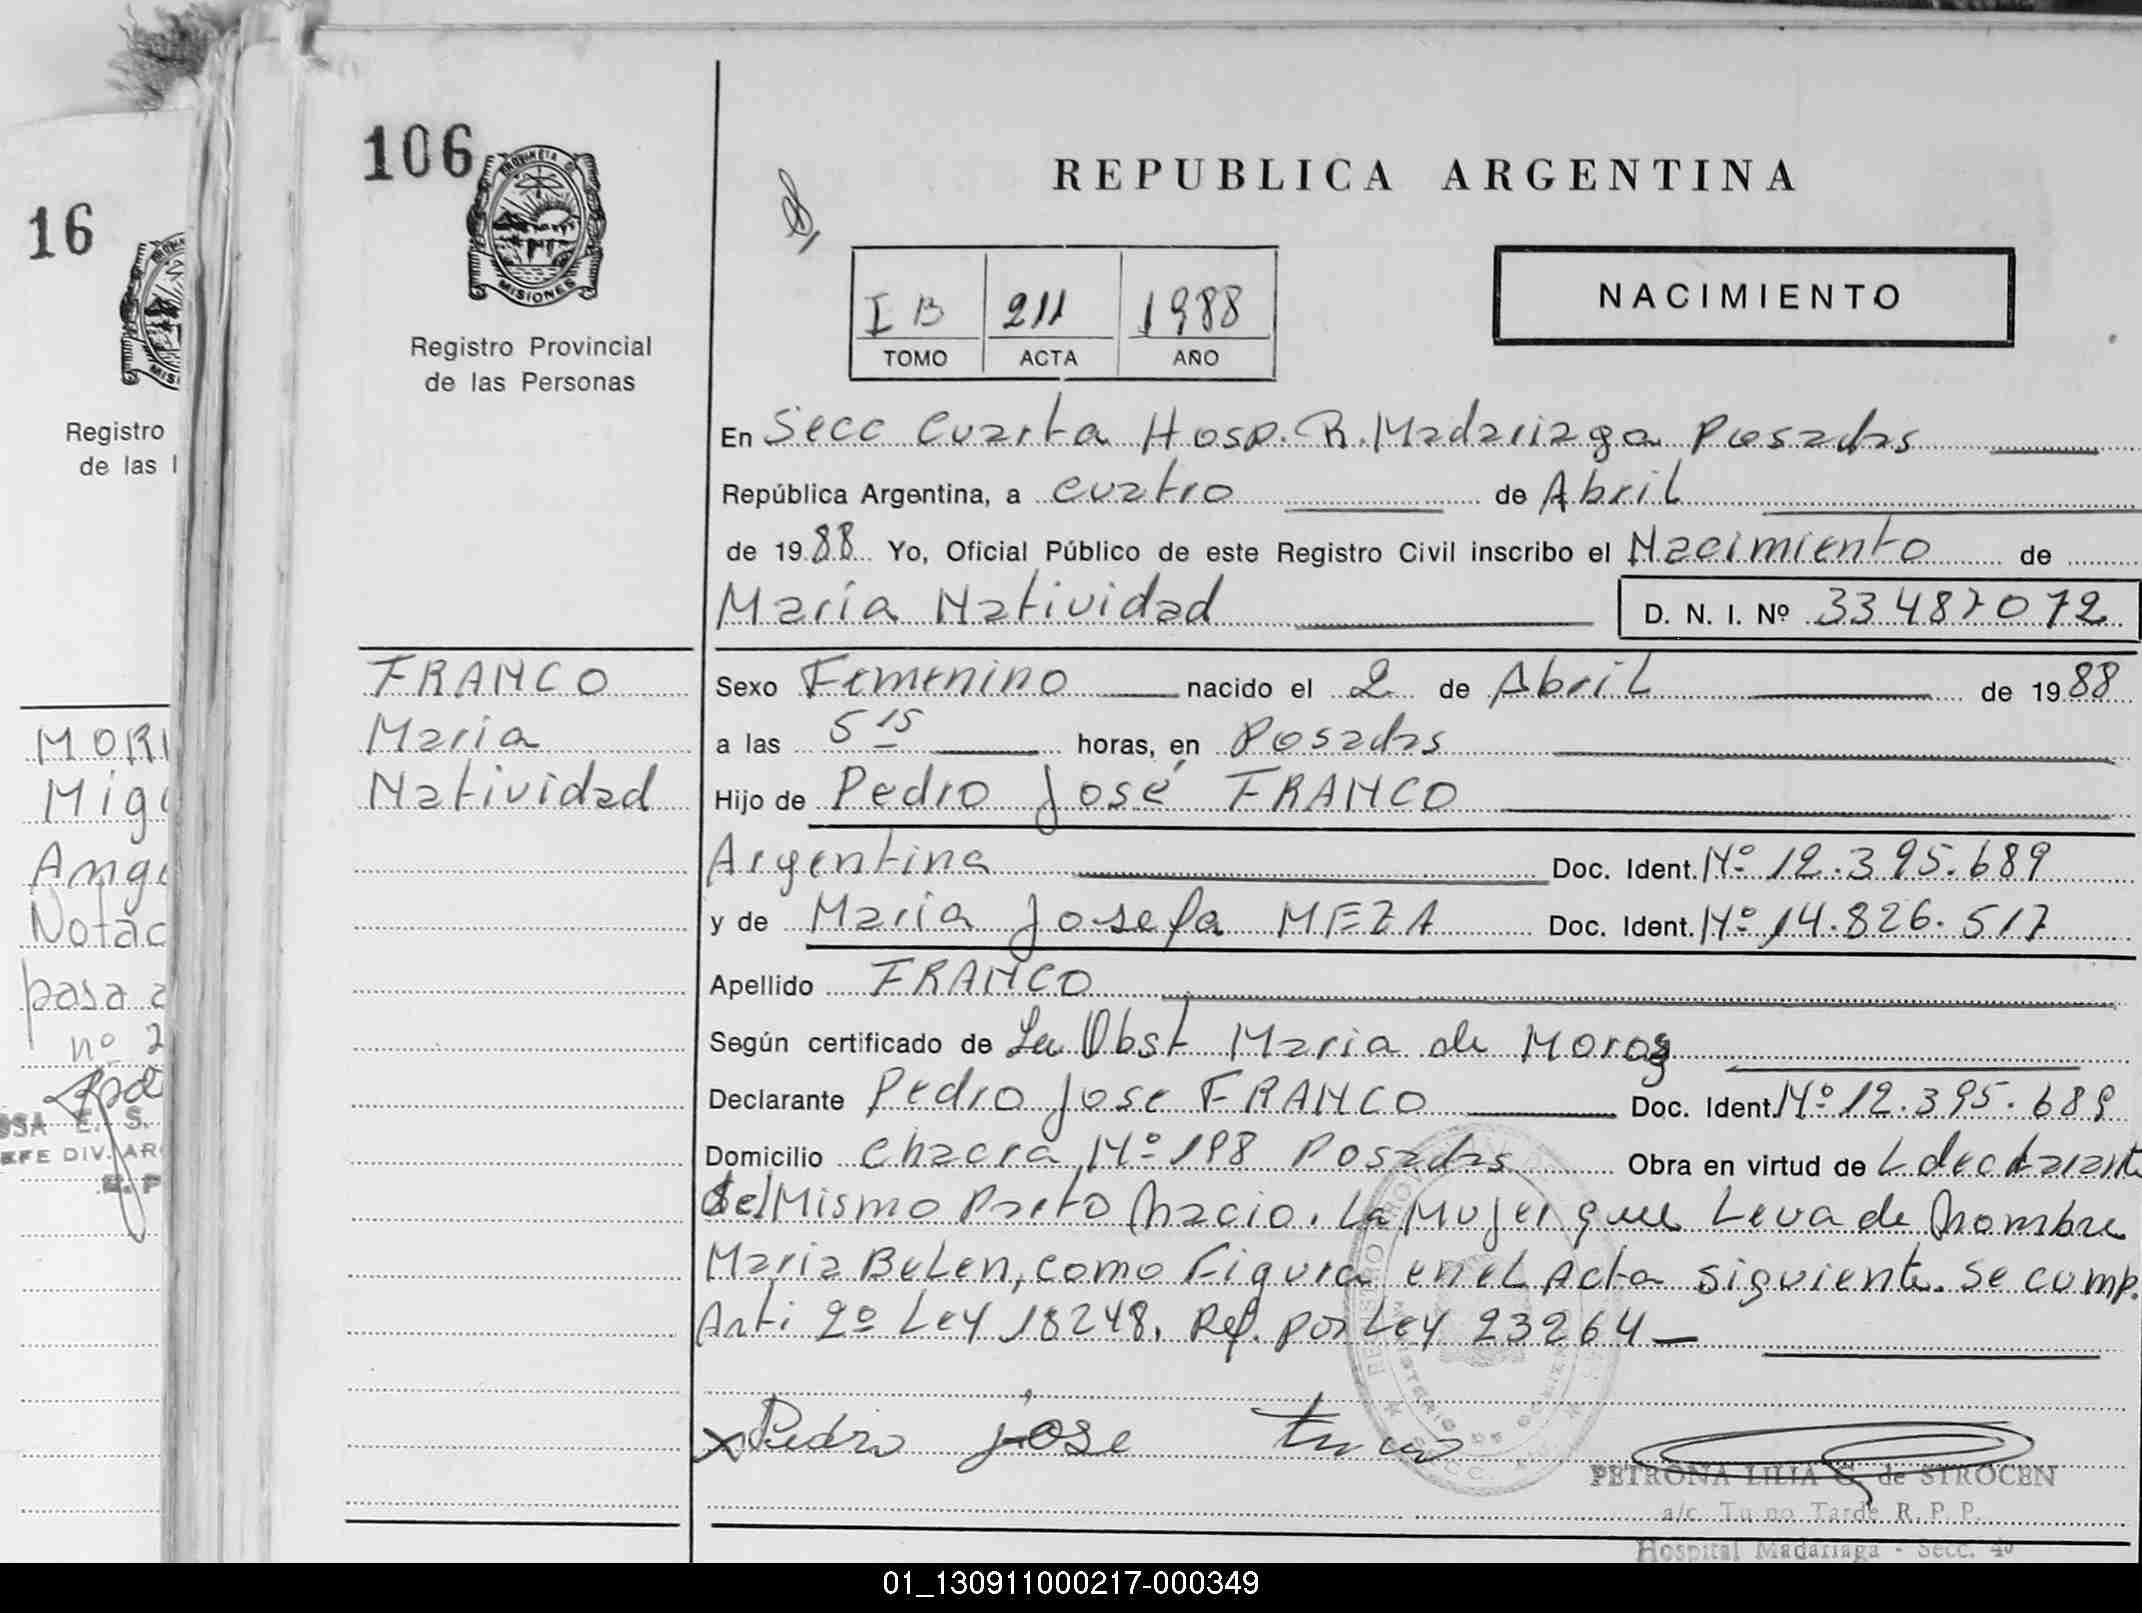 106
PROVINCIA DE
MISIONES
Registro Provincial
de las Personas
REPUBLICA ARGENTINA
I B 211 1988
TOMO ACTA AÑO
NACIMIENTO
En Secc Cuarta Hosp. R. Madariaga Posadas
República Argentina, a cuatro de Abril
de 1988 Yo, Oficial Público de este Registro Civil inscribo el Nacimiento de
María Natividad D. N. I. Nº 33487072
FRANCO
Maria
Natividad
Sexo Femenino nacido el 2 de Abril de 1988
a las 5 15 horas, en Posadas
Hijo de Pedro José FRANCO
Argentina Doc. Ident. Nº 12.395.689
y de Maria Josefa MEZA Doc. Ident. Nº 14.826.517
Apellido FRANCO
Según certificado de La Obst Maria de
Declarante Pedro Jose FRANCO Doc. Ident Nº 12.395.689
Domicilio chacra Nº 198 Posadas Obra en virtud de
del Mismo Parto nacio. La Mujer que Leva de nombre
Maria BeLen, como Figura en eL Acta siguiente. Se cump.
Arti 2º Ley 18248. Ref. por Ley 23264
x Pedro jose
PETRONA LILIA G. de STROCEN
a/c. Tu no Tarde R. P. P.
Hospital Madariaga - Secc. 4ª
16
MIS
Registro
de las
MOR
Mig
Ang
Notac
pasa a
nº 2
OSA E. S.
EFE DIV. AR
01_130911000217-000349